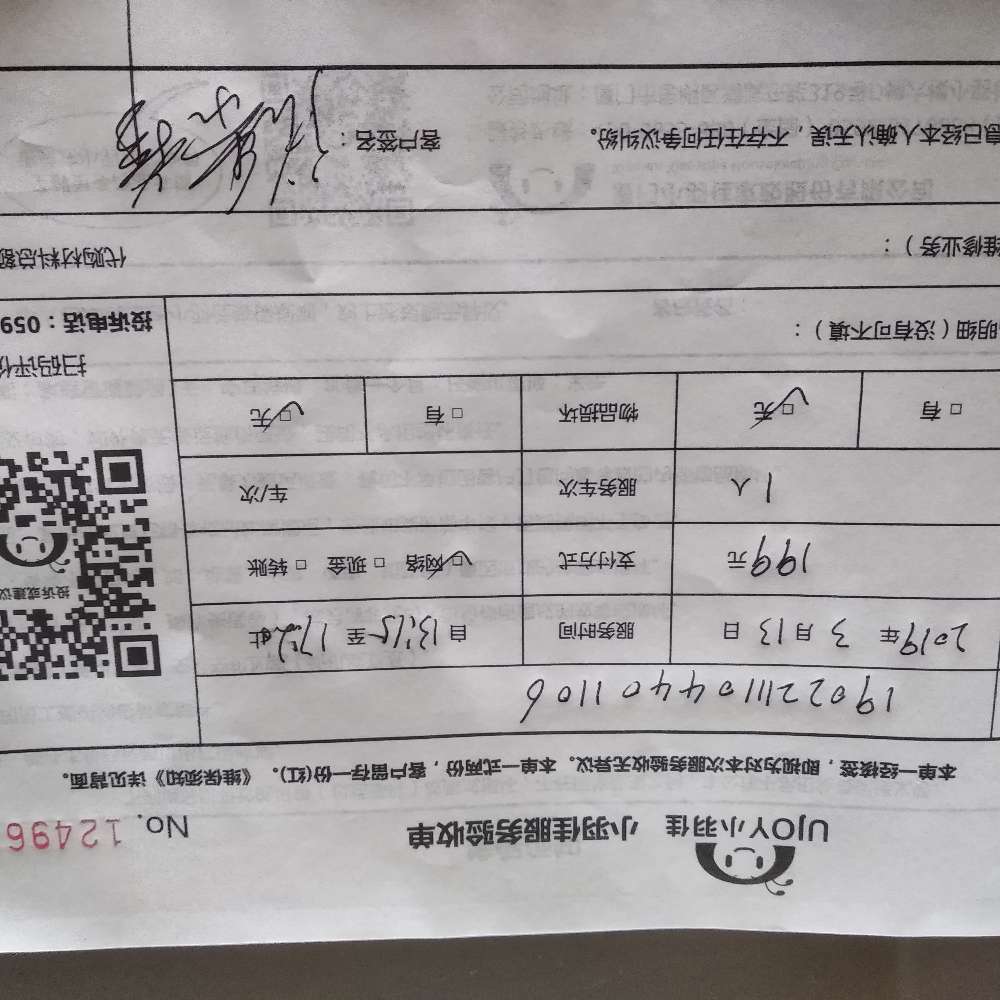 UJOY小羽佳 小羽佳服务验收单
No. 12496
本单一经核签，即视为对本次服务验收无异议。本单一式两份，客户留存一份(红)。《维保须知》详见背面。
1902211104401106
2019年 3月13日 服务时间 自13:15至17:20止
199元 支付方式 ☑网络 □现金 □转账
1人 服务车次 车/次
□有 ☑无 物品损坏 □有 ☑无
投诉或建议
扫码评价
明细（没有可不填）：
投诉电话：059
维修业务）： 代购材料总额
息已经本人确认无误，不存在任何争议纠纷。 客户签名：